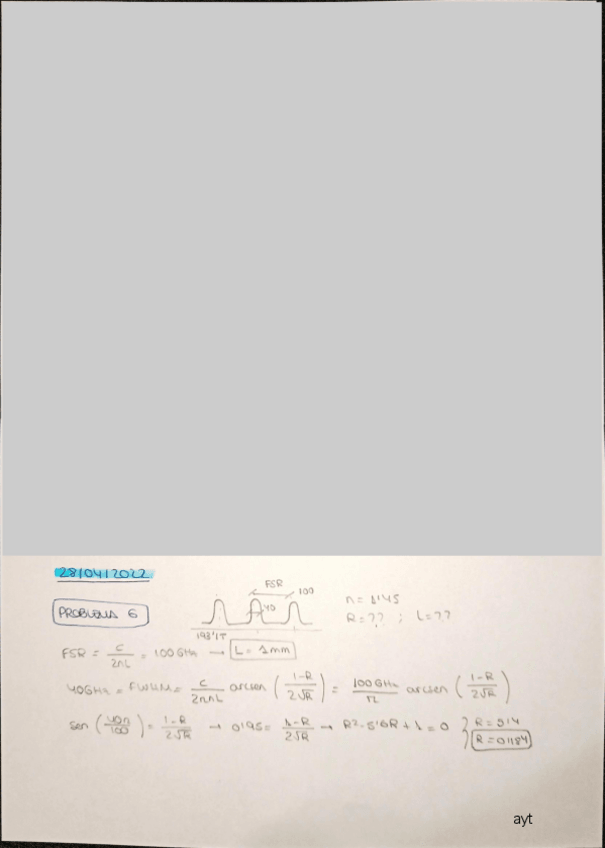 28/04/2022
PROBLEMA 6
FSR
100
40
193'1T
n = 1'45
R = ?? ; L = ??
FSR = c/2nL = 100 GHz → L = 1mm
40GHz = FWHM = c/2πnL arcsen (1-R/2√R) = 100 GHz/π arcsen (1-R/2√R)
sen (40π/100) = 1-R/2√R → 0'95 = 1-R/2√R → R²-5'6R + 1 = 0 } R = 5'4
R = 0'184
ayt